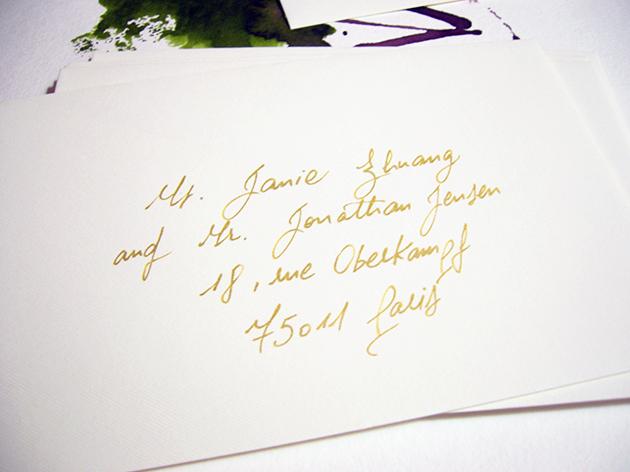 Mr. Janie Zhuang
and Mr. Jonathan Jensen
18, rue Oberkampf
75011 Paris